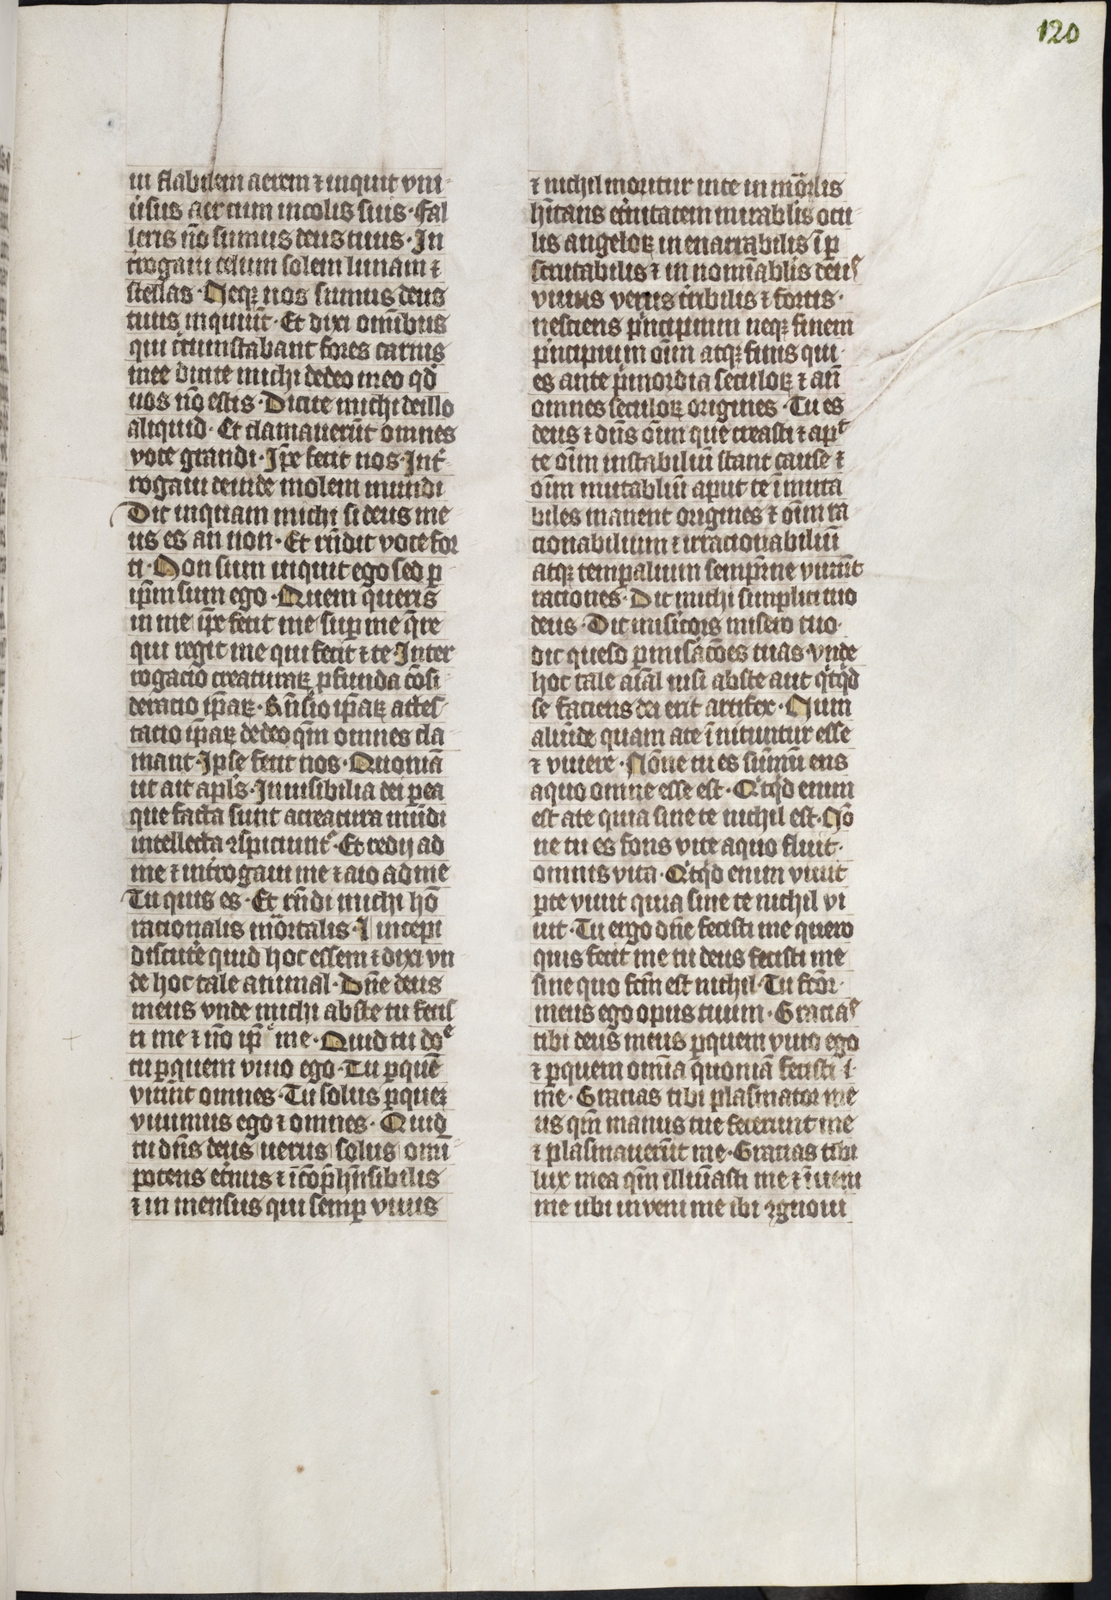 120
ui flabilem aerem ⁊ inquit vni-
úsus aer cum incolis suis · Fal
leris nō sumus deus tuus · In
trogaui celum solem lunam ⁊
stellas · Neqꝫ nos sumus deus
tuus inquiūt · Et dixi omībus
qui circūstabant fores carnis
mee dicite michi de deo meo qd̄
uos nō estis · Dicite michi de illo
aliquid · Et clamauerūt omnes
voce grandi · Ip̄e fecit nos · Int̄
rogaui deinde molem mundi
Dic inquam michi si deus me
us es an non · Et rn̄dit voce for
ti · Non sum inquit ego sed ꝑ
ip̄m sum ego · Quem queris
in me ip̄e fecit me sup me q̄re
qui regit me qui fecit ⁊ te · Inter
rogacio creaturaꝝ ꝓfunda cōsi-
deracio ip̄aꝝ · Rn̄sio ip̄aꝝ attes-
tacio ip̄aꝝ de deo qm̄ omnes cla
mant · Ipse fecit nos · Quoniā
ut ait apl̄s · Inuisibilia dei ꝑ ea
que facta sunt a creatura mūdi
intellecta ꝯspiciunt᷑ · Et redij ad
me ⁊ int̄rogaui me ⁊ aio ad me
Tu quis es · Et rn̄di michi hō
racionalis mortalis · I incepi
discutē quid hoc essem ⁊ dixi vn
de hoc tale animal · Dn̄e deus
meus vnde michi abste tu fecis
ti me ⁊ nō ip̄e me · Quid tu do
tu ꝑ quem viuo ego · Tu ꝑ quē
viuūt omnes · Tu solus ꝑ queꝫ
viuimus ego ⁊ omnes · Quid
tu dn̄s deus uerus solus omī
potens et̄nus ⁊ īcōp̄hn̄sibilis
⁊ in mensus qui semꝑ viuis
⁊ nichil moritur in te in mortalis
hītans et̄nitatem mirabl̄is ocu
lis angeloꝝ in enarrabilis īꝑ
scrutabilis ⁊ in nomīabl̄is deus
viuus verus t̄ribilis ⁊ fortis ·
nesciens pͥncipium neqꝫ finem
pͥncipium oīm atqꝫ finis qui
es ante pͥmordia seculoꝝ ⁊ an̄
omnes seculoꝝ origines · Tu es
deus ⁊ dn̄s oīm que creasti ⁊ aput
te oīm instabiliū stant cause ⁊
oīm mutabliū aput te īmuta
biles manent origines ⁊ oīm ra
cionabilium ⁊ irracionabiliū
atqꝫ tempalium sempͥne viuūt
raciones · Dic michi simplici tuo
deus · Dic mis̄icors misero tuo ·
dic queso ꝑ mis̄acōes tuas vnde
hoc tale aīal nisi abste aut qͥcqͥd
se faciens dei erit artifex · Num
aliūde quam a te īnituntur esse
⁊ viuere · Nōne tu es summū ens
a quo omne esse est · Qͥcqͥd enim
est a te quia sine te nichil est · Nō
ne tu es fons vite a quo fluit ·
omnis vita · Qͥcqͥd enim viuit
ꝑ te viuit quia sine te nichil vi
uit · Tu ergo dn̄e fecisti me quero
quis fecit me tu deus fecisti me
sine quo fc̄m est nichil · Tu fc̄or
meus ego opus tuum · Gracias
tibi deus meus ꝑ quem viuo ego
⁊ ꝑ quem omīa quoniā fecisti ·
me · Gracias tibi plasmator me
us qm̄ manus tue fecerunt me
⁊ plasmauerūt me · Gracias tibi
lux mea qm̄ illuīasti me ⁊ īueni
me ubi inveni me ibi ꝯgnoui